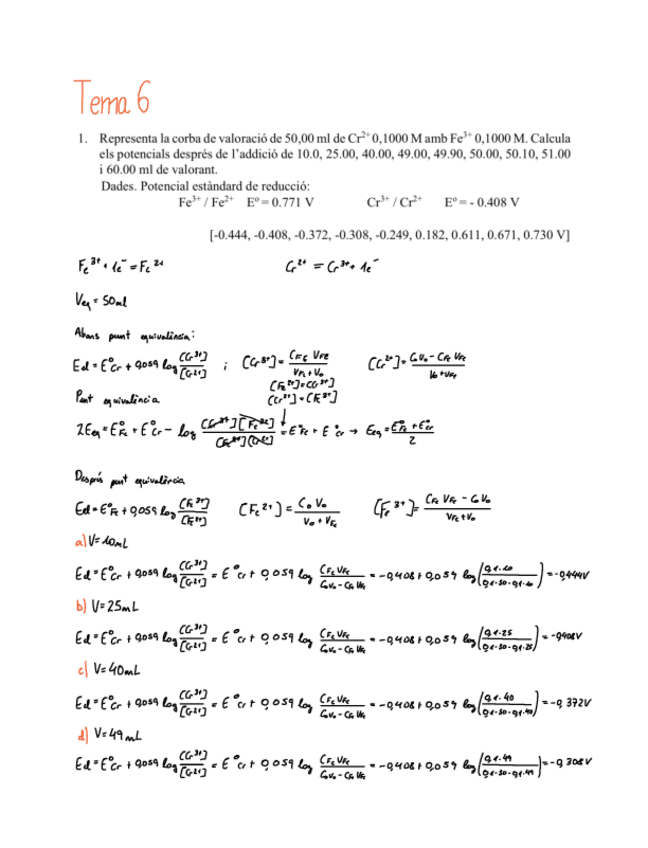 Tema 6
1. Representa la corba de valoració de 50,00 ml de Cr²⁺ 0,1000 M amb Fe³⁺ 0,1000 M. Calcula
els potencials després de l’addició de 10.0, 25.00, 40.00, 49.00, 49.90, 50.00, 50.10, 51.00
i 60.00 ml de valorant.
Dades. Potencial estàndard de reducció:
Fe³⁺ / Fe²⁺ Eº = 0.771 V Cr³⁺ / Cr²⁺ Eº = - 0.408 V
[-0.444, -0.408, -0.372, -0.308, -0.249, 0.182, 0.611, 0.671, 0.730 V]
Fe³⁺ + 1e⁻ = Fe²⁺ Cr²⁺ = Cr³⁺ + 1e⁻
Veq = 50ml
Abans punt equivalència:
Ed = E°Cr + 0,059 log [Cr³⁺]/[Cr²⁺] ; [Cr³⁺] = CFe VFe / VFe + V₀ [Cr²⁺] = C₀V₀ - CFe VFe / V₀ + VFe
[Fe²⁺] = [Cr³⁺]
Punt equivalència [Cr²⁺] = [Fe³⁺]
2Eeq = E°Fe + E°Cr - log [Cr³⁺][Fe²⁺]/[Fe³⁺][Cr²⁺] = E°Fe + E°Cr → Eeq = E°Fe + E°Cr / 2
Després punt equivalència
Ed = E°Fe + 0,059 log [Fe³⁺]/[Fe²⁺] [Fe²⁺] = C₀ V₀ / V₀ + VFe [Fe³⁺] = CFe VFe - C₀ V₀ / VFe + V₀
a) V = 10mL
Ed = E°Cr + 0,059 log [Cr³⁺]/[Cr²⁺] = E°Cr + 0,059 log CFe VFe / C₀V₀ - CFe VFe = -0,408 + 0,059 log (0,1·10 / 0,1·50 - 0,1·10) = -0,444V
b) V = 25mL
Ed = E°Cr + 0,059 log [Cr³⁺]/[Cr²⁺] = E°Cr + 0,059 log CFe VFe / C₀V₀ - CFe VFe = -0,408 + 0,059 log (0,1·25 / 0,1·50 - 0,1·25) = -0,408V
c) V = 40mL
Ed = E°Cr + 0,059 log [Cr³⁺]/[Cr²⁺] = E°Cr + 0,059 log CFe VFe / C₀V₀ - CFe VFe = -0,408 + 0,059 log (0,1·40 / 0,1·50 - 0,1·40) = -0,372V
d) V = 49mL
Ed = E°Cr + 0,059 log [Cr³⁺]/[Cr²⁺] = E°Cr + 0,059 log CFe VFe / C₀V₀ - CFe VFe = -0,408 + 0,059 log (0,1·49 / 0,1·50 - 0,1·49) = -0,308V